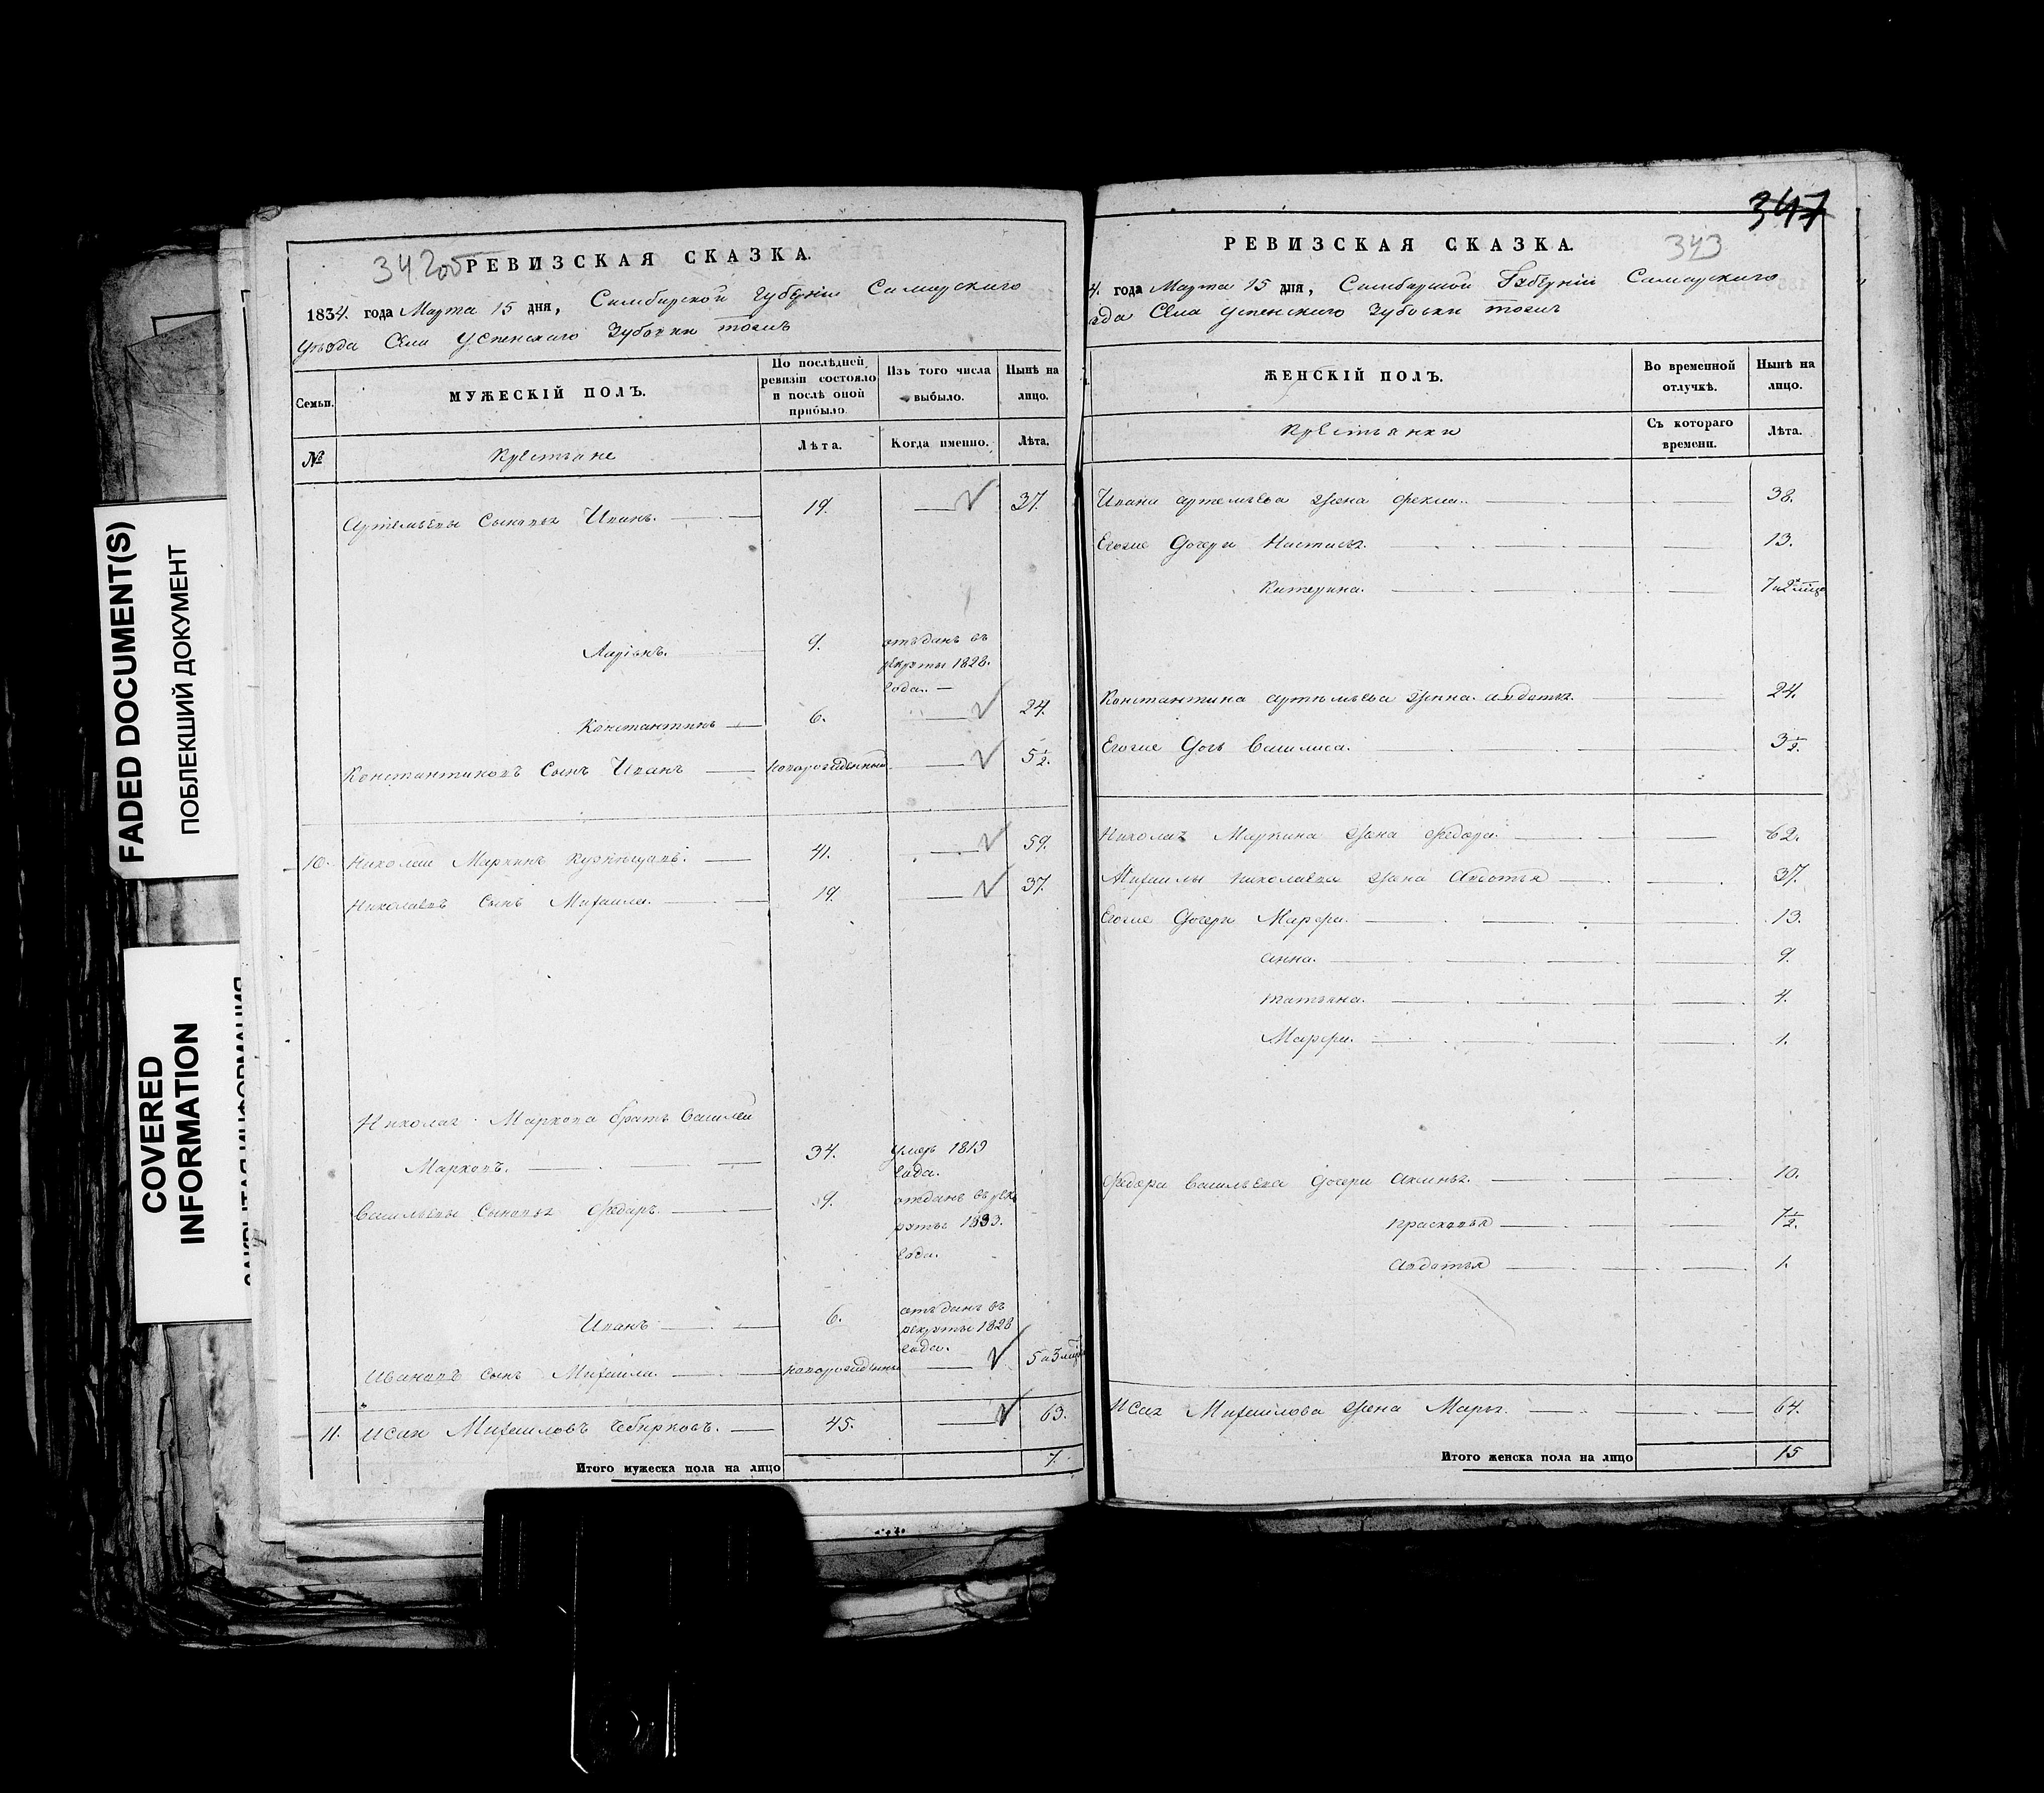 FADED DOCUMENT(S)
ПОБЛЕКШИЙ ДОКУМЕНТ
COVERED
INFORMATION
ЗАКРЫТАЯ ИНФОРМАЦИЯ
342об
РЕВИЗСКАЯ СКАЗКА.
1834. года Марта 15 дня, Симбирской губерніи Самарскаго
уѣзда Села Успенскаго Зубовки тожъ
Семьи. МУЖЕСКІЙ ПОЛЪ. По послѣдней ревизіи состояло и послѣ оной прибыло. Изъ того числа выбыло. Нынѣ на лицо.
№ Крестьяне Лѣта. Когда именно. Лѣта.
Артемьевы Сыновья Иванъ. 19. 37.
Ларіонъ. 9. отъданъ въ
рекруты 1828.
года.
Константинъ 6. 24.
Константиновъ Сынъ Иванъ новорожденный 5½.
10. Николай Маркинъ Кузнецовъ. 41. 59.
Николаевъ сынъ Михаила. 19. 37.
Николая Маркова братъ Василей
Марковъ. 34. умеръ 1819
года.
Васильевы Сыновья Федоръ. 9. отданъ въ рек
руты 1833.
года.
Иванъ 6. отъданъ въ
рекруты 1828
года.
Ивановъ сынъ Михаила. новорожденный 5 и 3 мѣся
11. Исай Михайловъ Чебирковъ. 45. 63.
Итого мужеска пола на лицо 7.
347
343
РЕВИЗСКАЯ СКАЗКА.
4. года Марта 15 дня, Симбирской Губерніи Самарскаго
зда Села Успенскаго Зубовки тожъ
ЖЕНСКІЙ ПОЛЪ. Во временной отлучкѣ. Нынѣ на лицо.
Крестьянки Съ котораго времени. Лѣта.
Ивана Артемьева жена Фекла. 38.
Егоже дочери Настасья. 13.
Катерина. 7 и 2 мѣся
Константина Артемьева жена Авдотья. 24.
Егоже дочь Василиса. 3½.
Николая Маркина жена Федора. 62.
Михаилы Николаева жена Авдотья 37.
Егоже дочери Марфа. 13.
Анна. 9.
Татьяна. 4.
Марфа. 1.
Федора Васильева дочери Акинья. 10.
Прасковья 7½.
Авдотья 1.
Исая Михайлова жена Марья. 64.
Итого женска пола на лицо 15